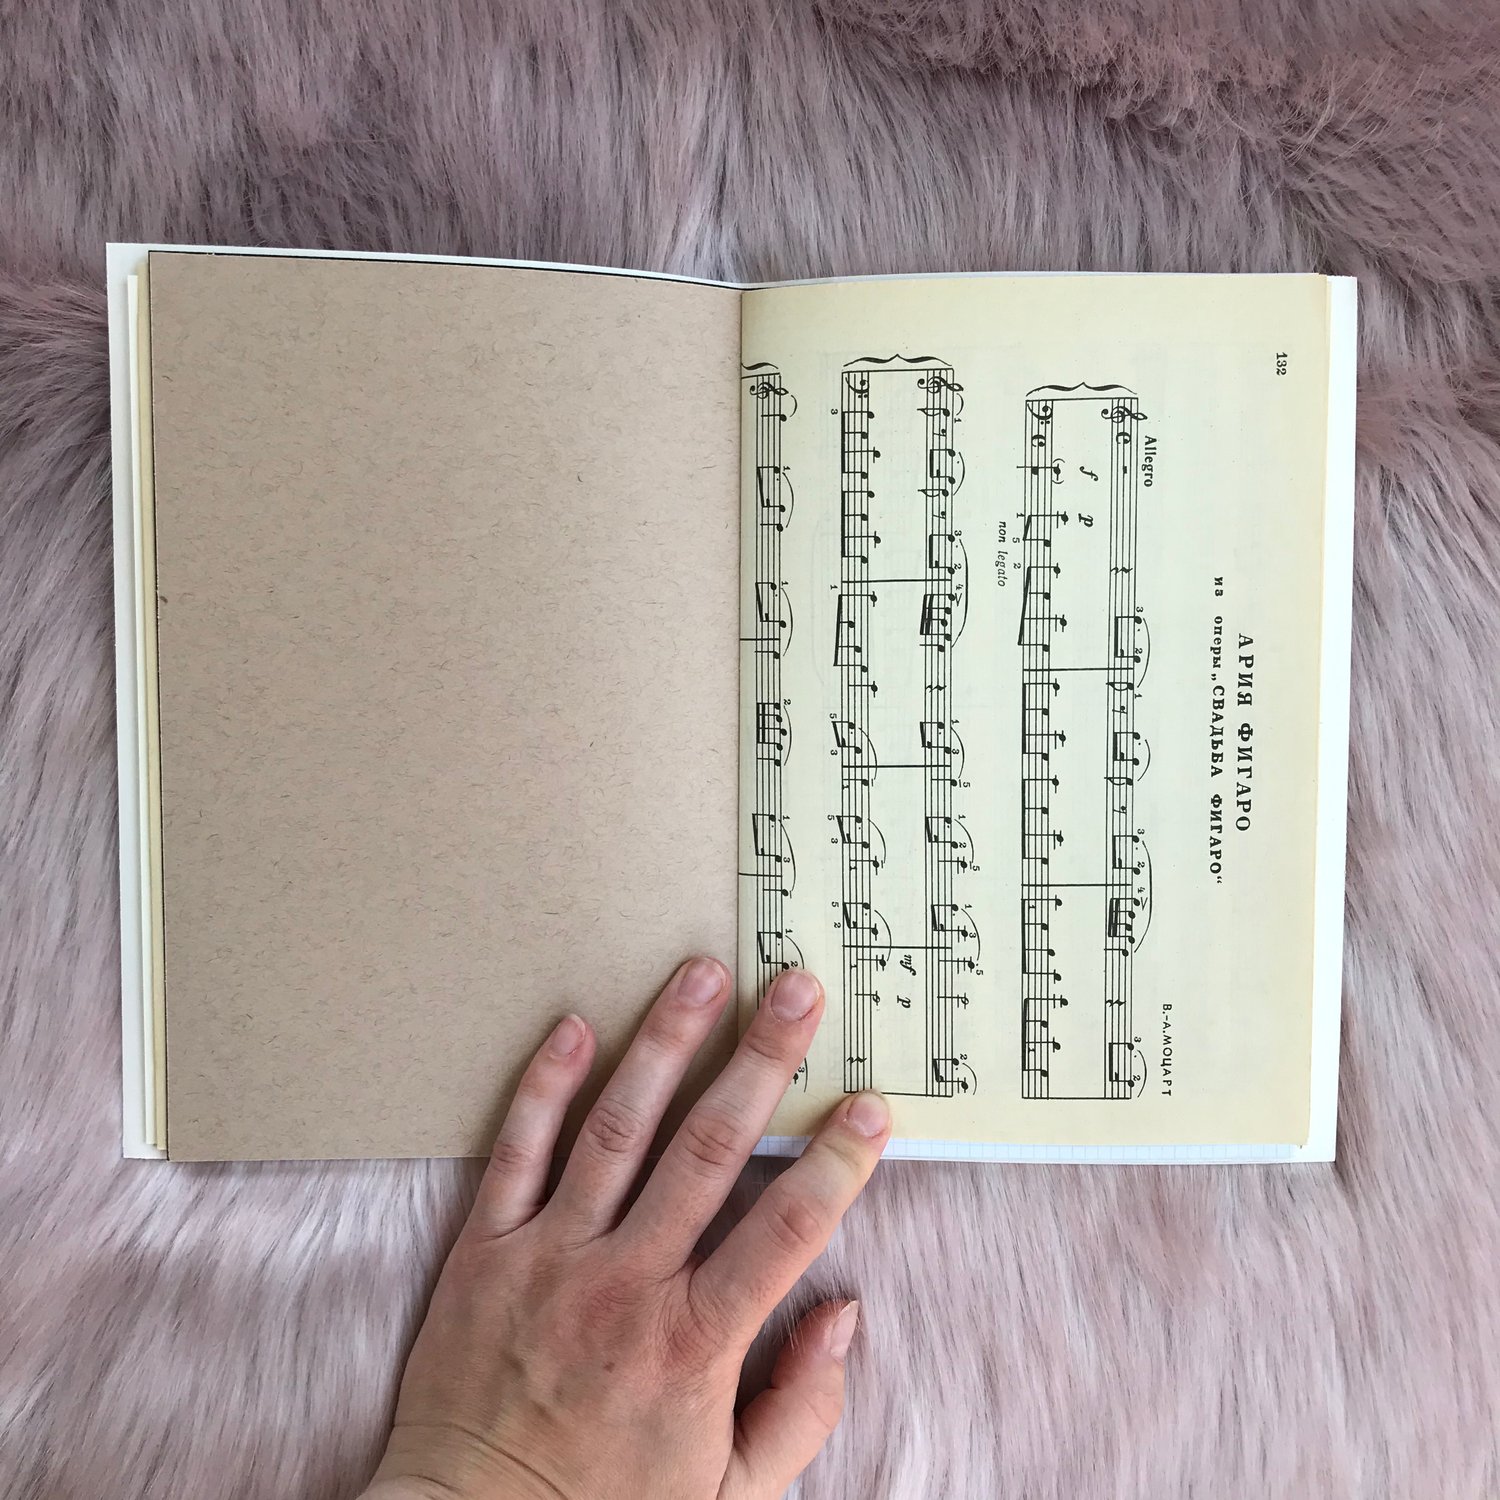 132
АРИЯ ФИГАРО
из оперы „СВАДЬБА ФИГАРО“
В.-А.МОЦАРТ
Allegro
f p
non legato
mf p